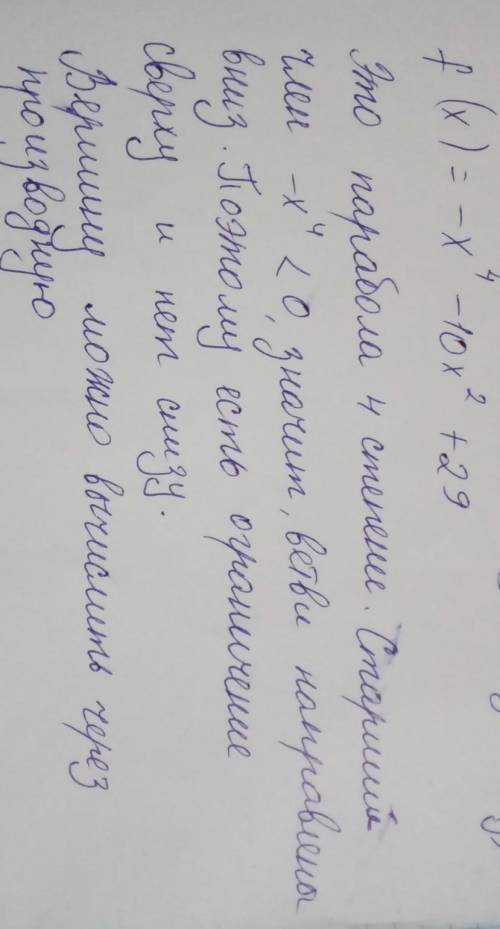 f(x) = -x⁴ - 10x² + 29
Это парабола 4 степени. Старший
член -x⁴ < 0, значит, ветви направлены
вниз. Поэтому есть ограничение
сверху и нет снизу.
Вершину можно вычислить через
производную